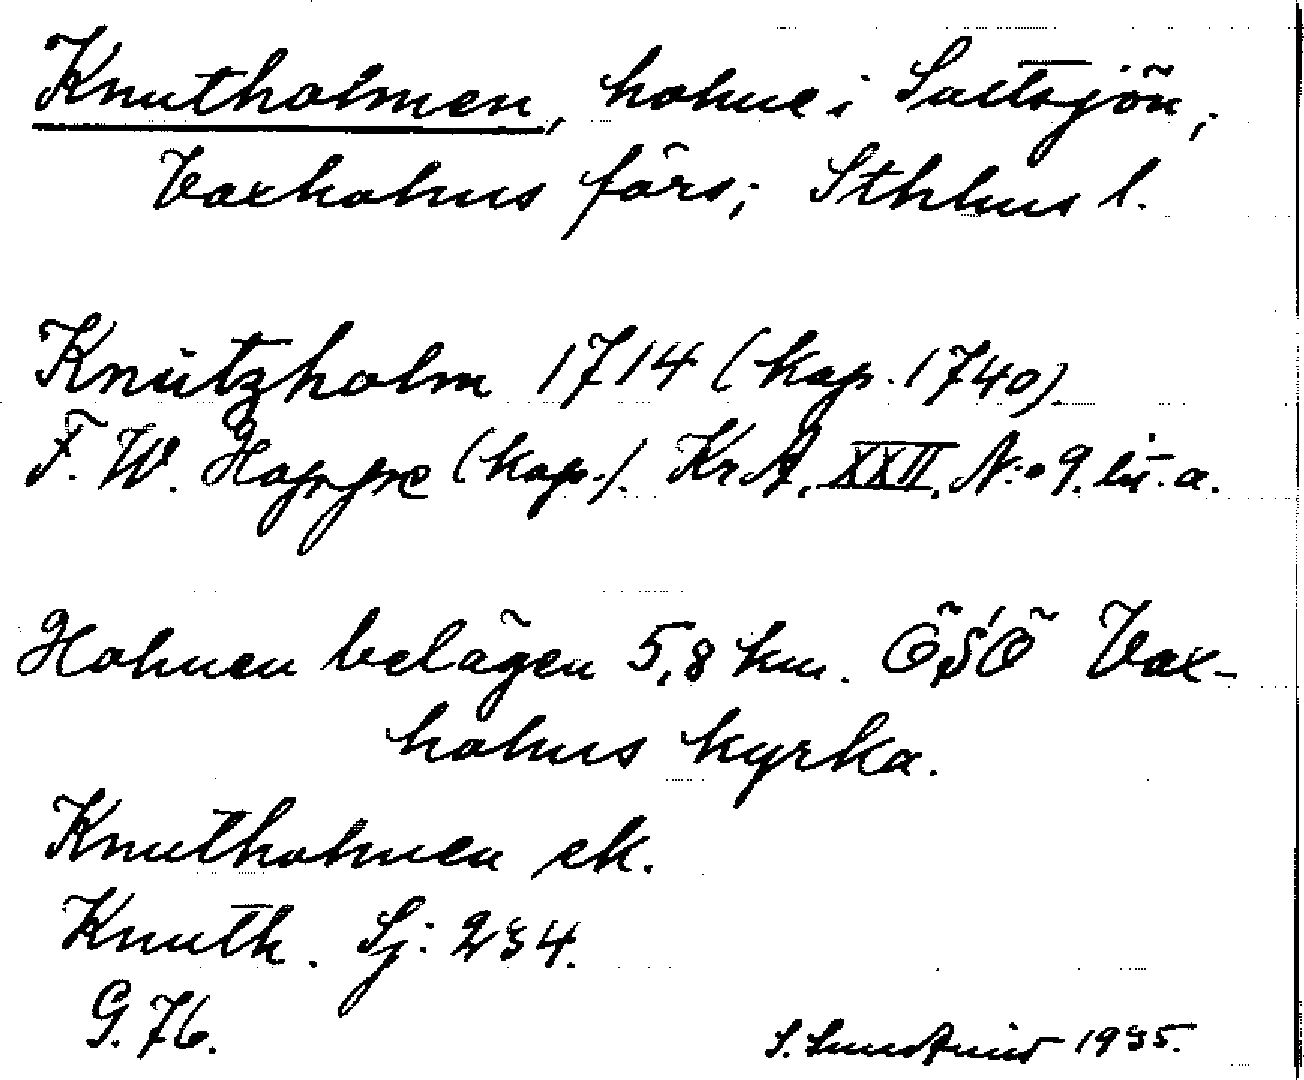 Knutholmen, holme i Saltsjön,
Vaxholms förs; Sthlms l.
Knutzholm 1714 (kop. 1740)
F. W. Hoppe (kop.). KrA. XXII. N:o 9. lit. a.
Holmen belägen 5,8 km. ÖSÖ Vax-
holms kyrka.
Knutholmen ek.
Knuth. Sj: 234.
G. 76.
S. 1935.